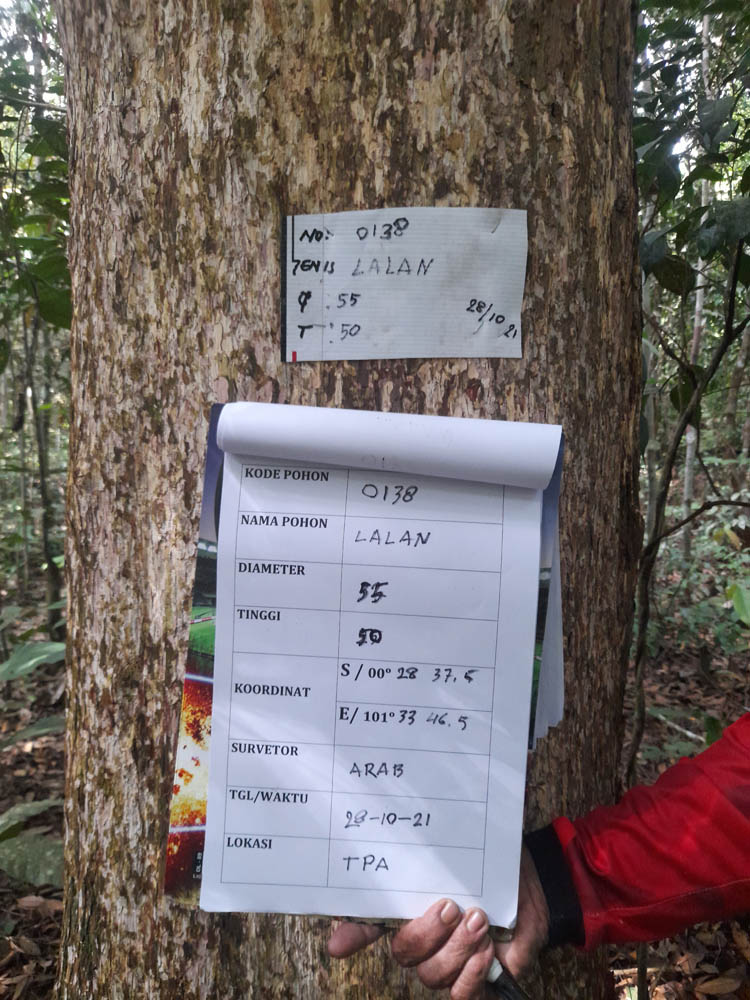 NO: 0138
JENIS LALAN
φ : 55
T : 50
28/10 21
KODE POHON 0138
NAMA POHON LALAN
DIAMETER 55
TINGGI 50
KOORDINAT S / 00º 28 37.5
E/ 101º 33 46.5
SURVETOR ARAB
TGL/WAKTU 28-10-21
LOKASI TPA